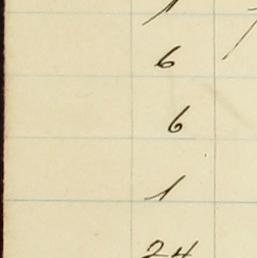 1
6
6
1
24